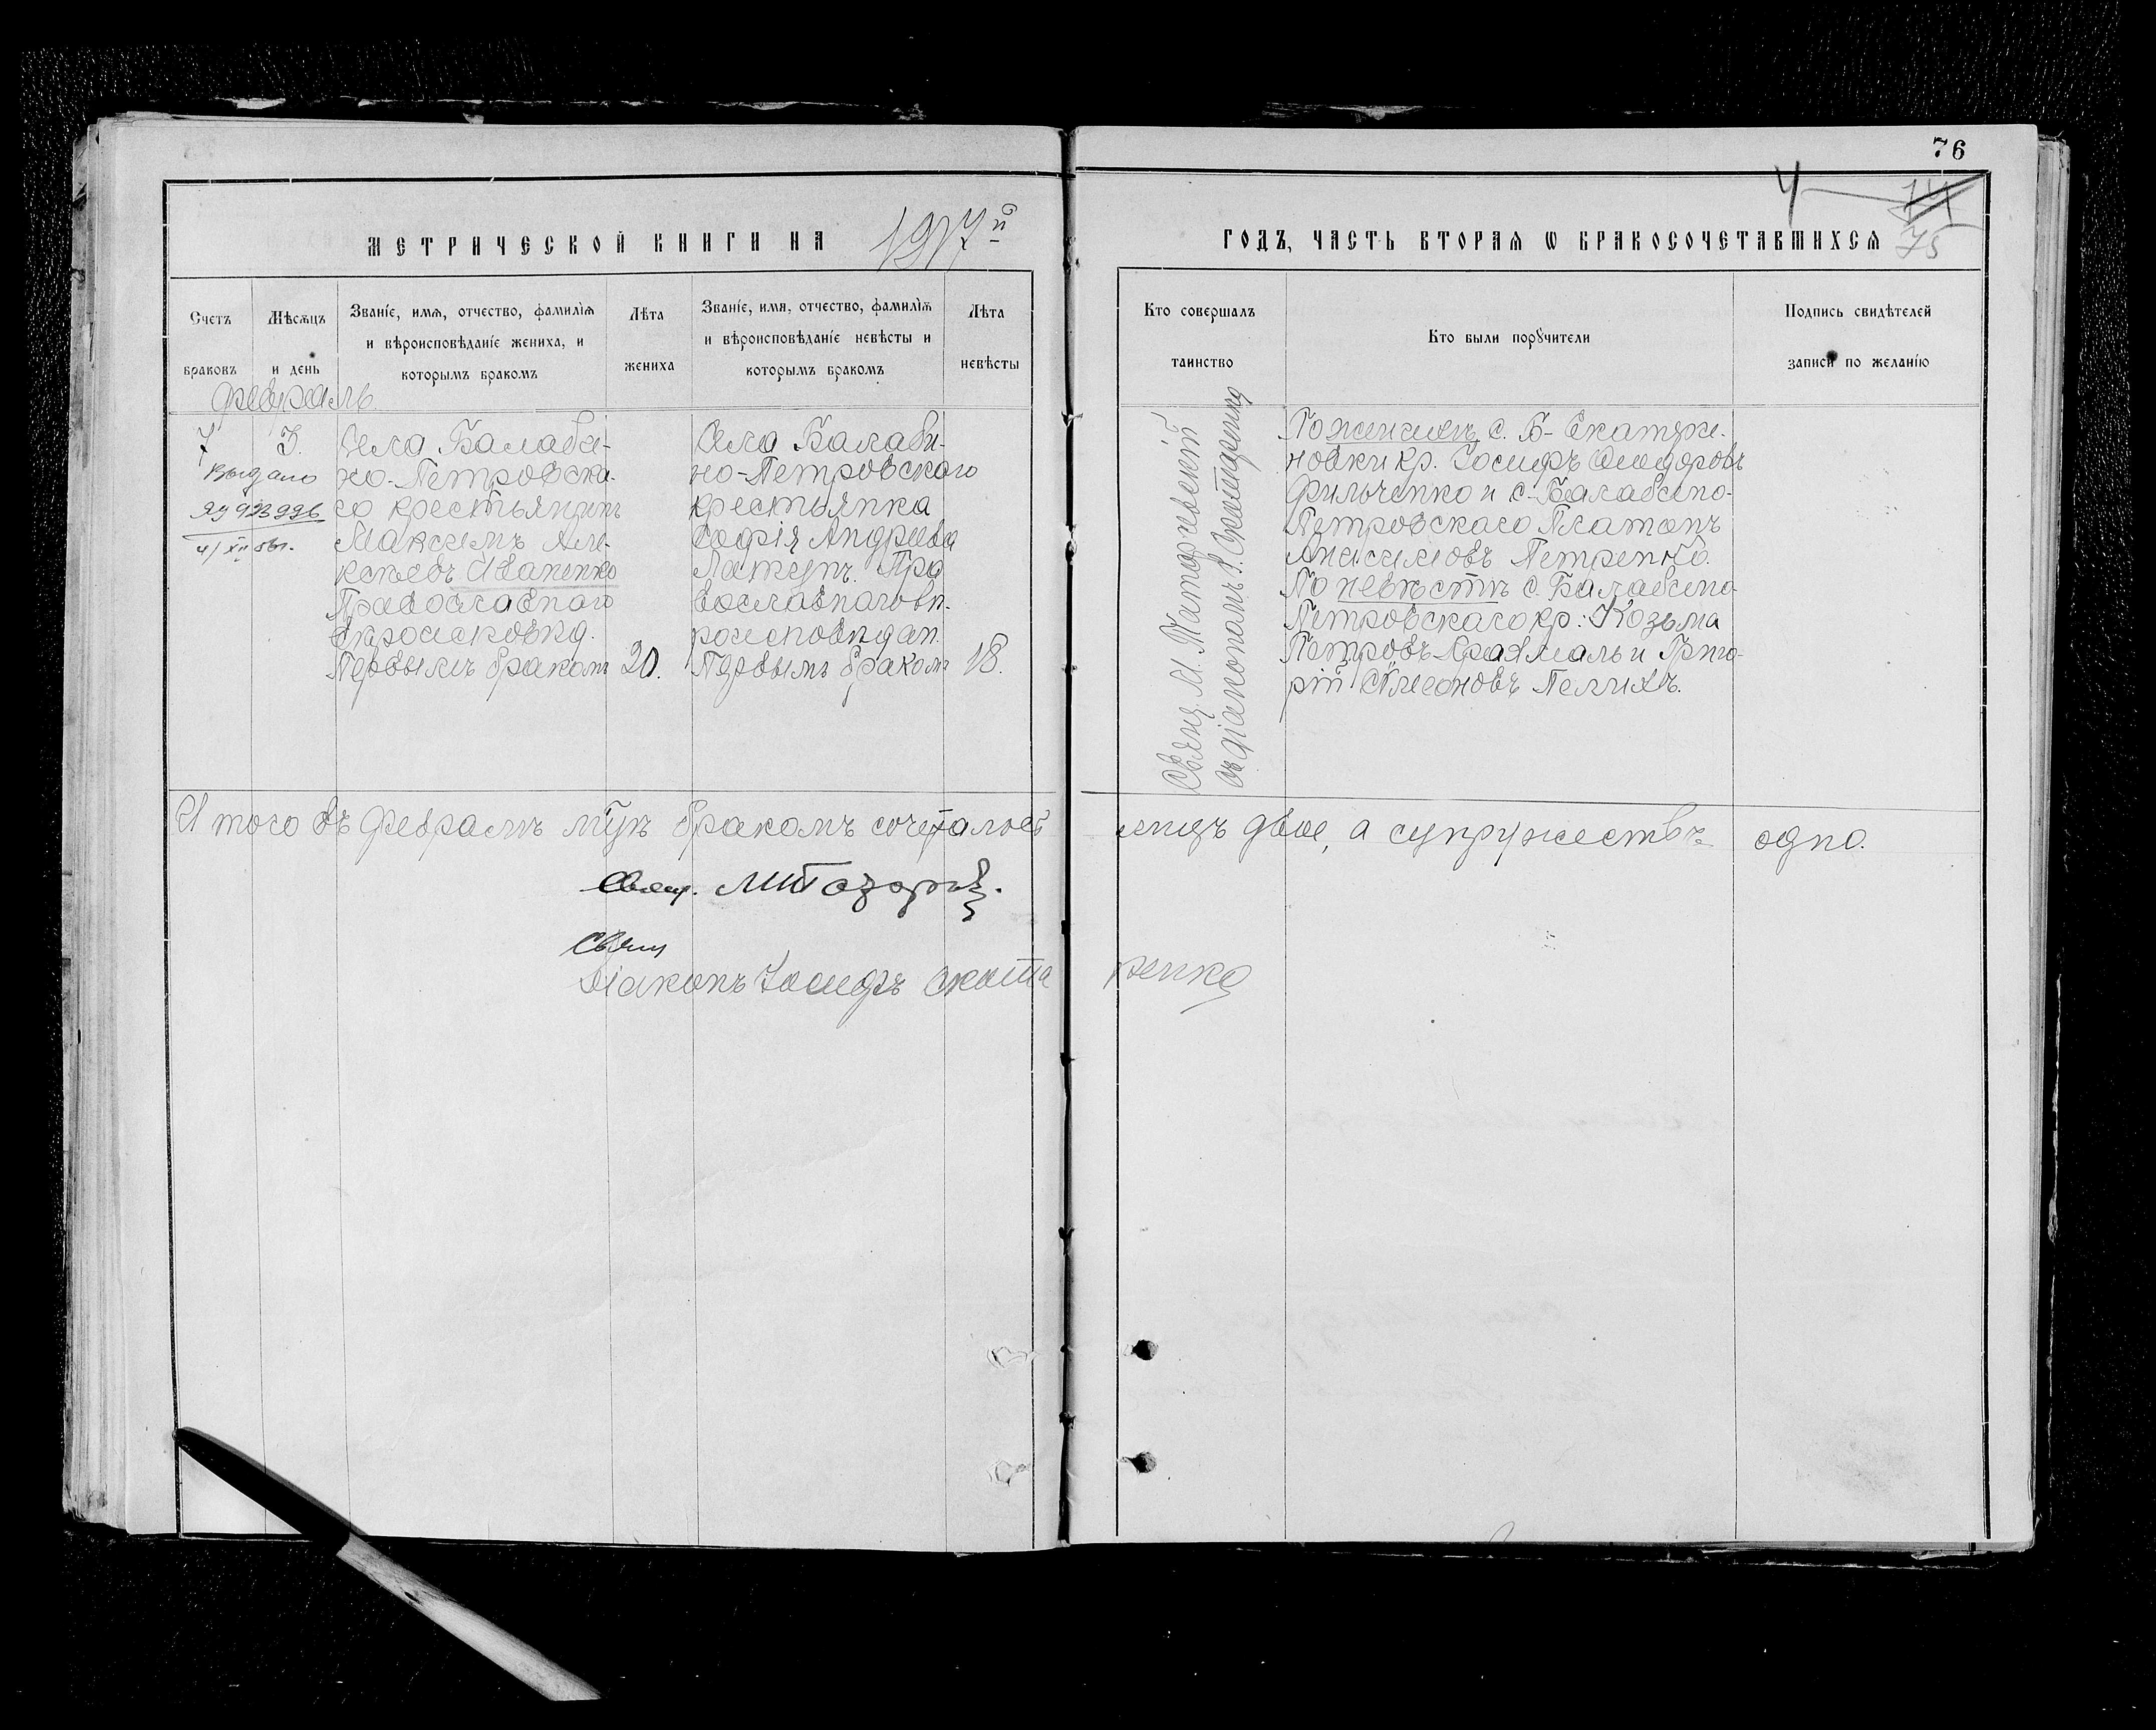 76
4
75
МЕТРИЧЕСКОЙ КНИГИ НА 1917й
ГОДЪ, ЧАСТЬ ВТОРАЯ Ѡ БРАКОСОЧЕТАВШИХСЯ
Счетъ браковъ
Мѣсяцъ и день
Званіе, имя, отчество, фамилія
и вѣроисповѣданіе жениха, и
которымъ бракомъ
Лѣта жениха
Званіе, имя, отчество, фамилія
и вѣроисповѣданіе невѣсты и
которымъ бракомъ
Лѣта невѣсты
Кто совершалъ таинство
Кто были порꙋчители
Подпись свидѣтелей
записи по желанію
февраль
7
3.
Выдано
4/XII 56г.
Села Балаби-
но-Петровска-
го крестьянинъ
Максимъ Але-
ксѣевъ Иваненко
Православнаго
вѣроисповѣд.
Первымъ бракомъ
20.
Села Балаби-
но-Петровского
крестьянка
Софія Андреева
Православнаго вѣ-
роисповѣдан.
Первымъ бракомъ
18.
Свящ. М.
съ діакономъ І.
По женихѣ с. Б-Екатери-
новки кр. Іосифъ Ѳеодоровъ
Фильченко и с. Балабино-
Петровскаго Платонъ
Анисимовъ Петренко.
По невѣстѣ с. Балабино-
Петровскаго кр.: Козьма
Петровъ и Григо-
рій Симеоновъ
Итого въ февралѣ м-цѣ бракомъ сочеталось
лицъ двое, а супружествъ одно.
Свящ.
Свящ
Діаконъ Іосифъ